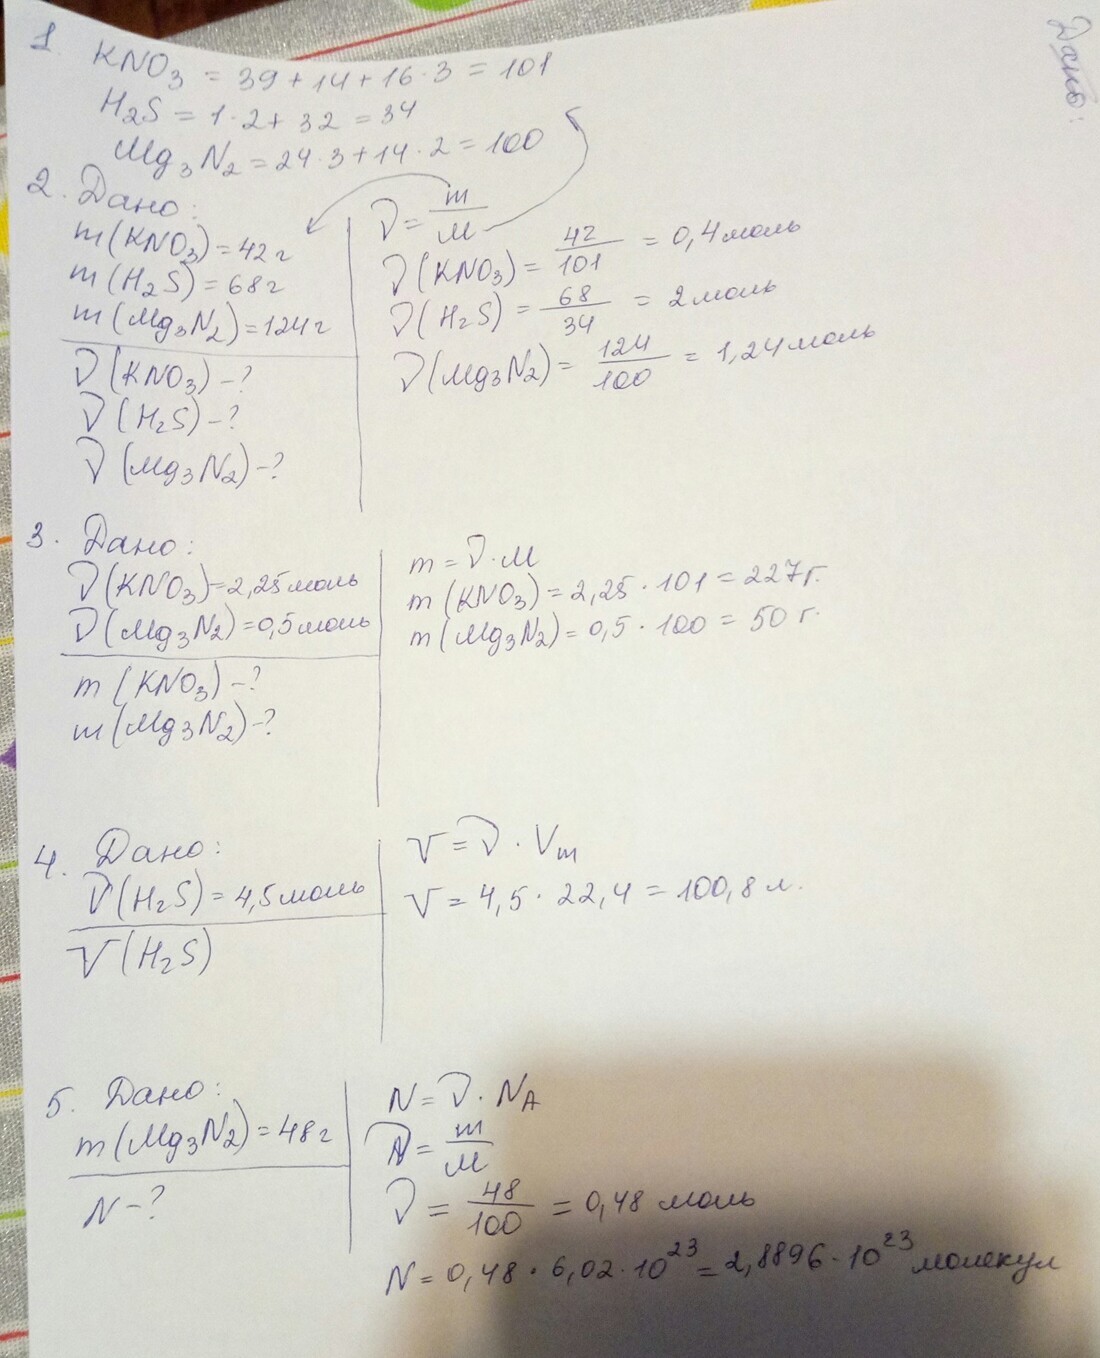 1. KNO₃ = 39 + 14 + 16 · 3 = 101
H₂S = 1 · 2 + 32 = 34
Mg₃N₂ = 24 · 3 + 14 · 2 = 100
2. Дано:
m(KNO₃) = 42 г
m(H₂S) = 68 г
m(Mg₃N₂) = 124 г
ν(KNO₃) - ?
ν(H₂S) - ?
ν(Mg₃N₂) - ?
ν = m/M
ν(KNO₃) = 42/101 = 0,4 моль
ν(H₂S) = 68/34 = 2 моль
ν(Mg₃N₂) = 124/100 = 1,24 моль
3. Дано:
ν(KNO₃) = 2,25 моль
ν(Mg₃N₂) = 0,5 моль
m(KNO₃) - ?
m(Mg₃N₂) - ?
m = ν · M
m(KNO₃) = 2,25 · 101 = 227 г.
m(Mg₃N₂) = 0,5 · 100 = 50 г.
4. Дано:
ν(H₂S) = 4,5 моль
V(H₂S)
V = ν · Vm
V = 4,5 · 22,4 = 100,8 л.
5. Дано:
m(Mg₃N₂) = 48 г
N - ?
N = ν · N_A
ν = m/M
ν = 48/100 = 0,48 моль
N = 0,48 · 6,02 · 10²³ = 2,8896 · 10²³ молекул
Дано: